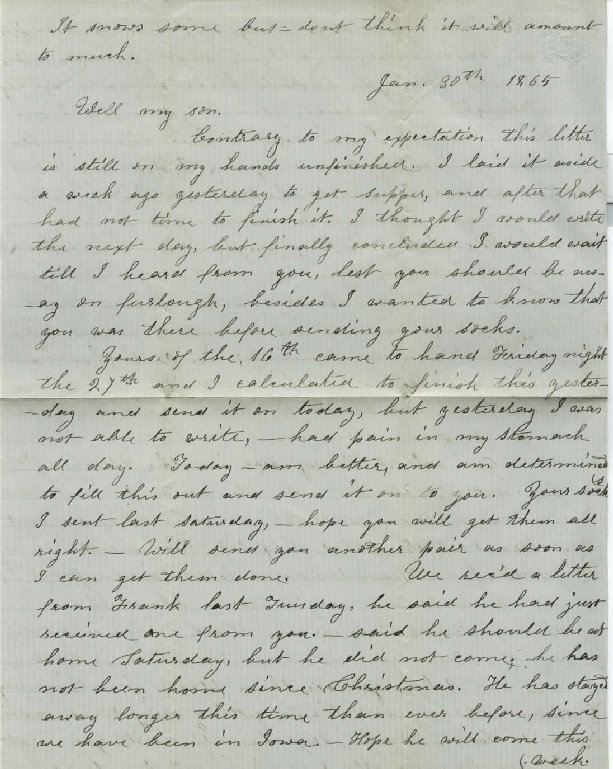 It snows some but = dont think it will amount
to much.
Jan. 30th 1865
Well my son.
Contrary to my expectation this letter
is still on my hands unfinished. I laid it aside
a week ago yesterday to get supper, and after that
had not time to finish it. I thought I would write
the next day, but finally concluded I would wait
till I heard from you, lest you should be aw-
-ay on furlough, besides I wanted to know that
you was there before sending your socks.
Yours of the 16th came to hand Friday night
the 27th and I calculated to finish this yester-
-day and send it on today, but yesterday I was
not able to write, — had pain in my stomach
all day. Today — am better, and am determined
to fill this out and send it on to you. Your socks
I sent last saturday, — hope you will get them all
right. — Will send you another pair as soon as
I can get them done. We rec'd a letter
from Frank last Tuesday, he said he had just
received one from you. — said he should be at
home Saturday, but he did not come; he has
not been home since Christmas. He has stayed
away longer this time than ever before, since
we have been in Iowa. — Hope he will come this
(. week.